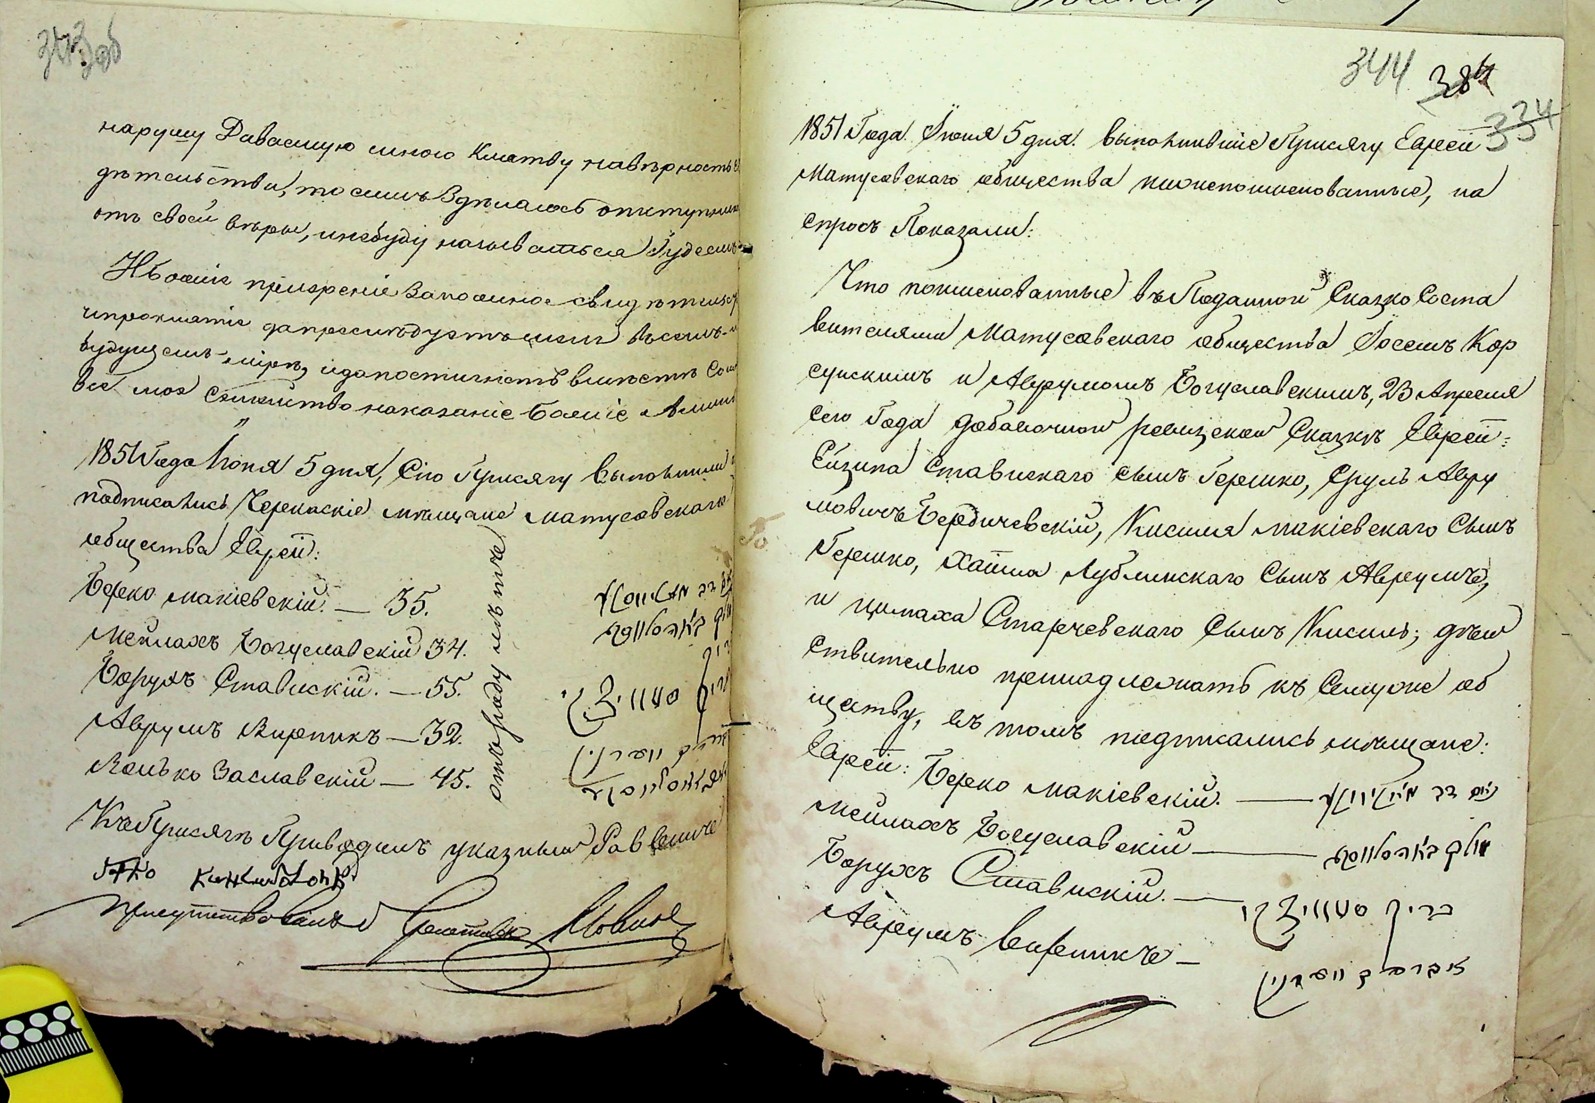 нарушу Даваемую мною Клятву навѣрность
дѣтельства, то самъ Здѣлаюсь отступник
отъ своей вѣры, и небуду называться Іудеемъ
И божіе призреніе за ложное свидѣтель
и проклятіе да преслѣдуетъ меня въ семъ и
будущемъ мірѣ, и да постигнетъ вмѣстѣ со мн
все мое семейство наказаніе божіе Аминь
1851 Года Іюня 5 дня, Сію Присягу выполнили и
подписались Черкаскіе мѣщане матусовскаго
общества Евреи:
Берко макіевскій — 35.
Мейлахъ Богуславскій 34.
Борухъ Ставискій. — 55.
Аврумъ Вирникъ — 32.
Янько Заславскій — 45.
отъ роду лѣтъ
Къ Присягѣ Приводилъ указный Раввинъ
присутствовалъ
344 384
334
1851 Года Іюня 5 дня. выполнившіе Присягу Евреи
Матусовскаго общества нижепоименованные, на
спросъ Показали:
Что поименованные въ Поданной Сказке Соста
вителями Матусовскаго общества Іосемъ Кор
сунскимъ и Аврумомъ Богуславскимъ, 23 Апреля
сего Года добавочной ревизской Сказкѣ Евреи:
Ейзика Ставискаго сынъ Гершко, Сруль Авру
мовичъ Бердичевскій, Кисиля макіевскаго Сынъ
Гершко, Хаима Лублинскаго Сынъ Аврумъ,
и цимаха Старчевскаго Сынъ Кисиль; дѣй
ствительно принадлежатъ къ Семуже об
ществу, въ томъ подписались мѣщане:
Евреи: Берко макіевскій. —
Мейлахъ Богуславскій —
Борухъ Ставискій. — ברוך
Аврумъ Вирникъ — אברהם